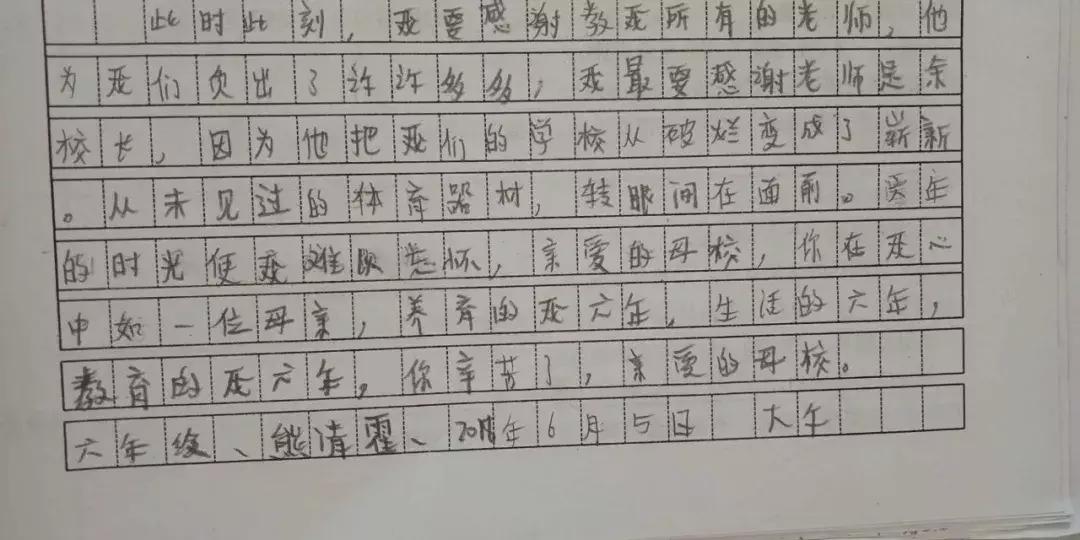 此时此刻，我要感谢教我所有的老师，他
为我们负出了许许多多，我最要感谢老师是余
校长，因为他把我们的学校从破烂变成了崭新
。从未见过的体育器材，转眼间在面前。六年
的时光使我难以忘怀，亲爱的母校，你在我心
中如一位母亲，养育的我六年，生活的六年，
教育的我六年，你辛苦了，亲爱的母校。
六年级、熊清霍、2018年6月5日